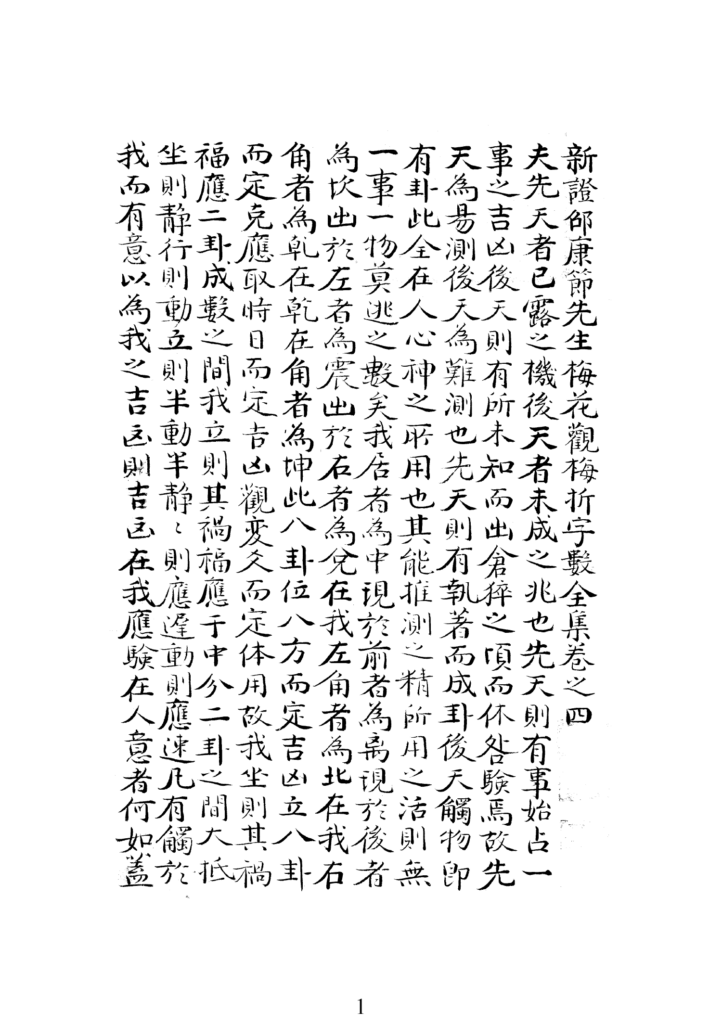 新證邵康節先生梅花觀梅折字數全集卷之四
夫先天者已露之機後天者未成之兆也先天則有事始占一
事之吉凶後天則有所未知而出倉猝之頃而休咎驗焉故先
天為易測後天為難測也先天則有執著而成卦後天觸物即
有卦此全在人心神之所用也其能推測之精所用之活則無
一事一物莫逃之數矣我居者為中現於前者為离現於後者
為坎出於左者為震出於右者為兌在我左角者為北在我右
角者為乹在乾在角者為坤此八卦位八方而定吉凶立八卦
而定克應取時日而定吉凶觀变爻而定体用故我坐則其禍
福應二卦成數之間我立則其禍福應于中分二卦之間大抵
坐則靜行則動立則半動半靜〻則應遲動則應速凡有觸於
我而有意以為我之吉凶則吉凶在我應驗在人意者何如蓋
1